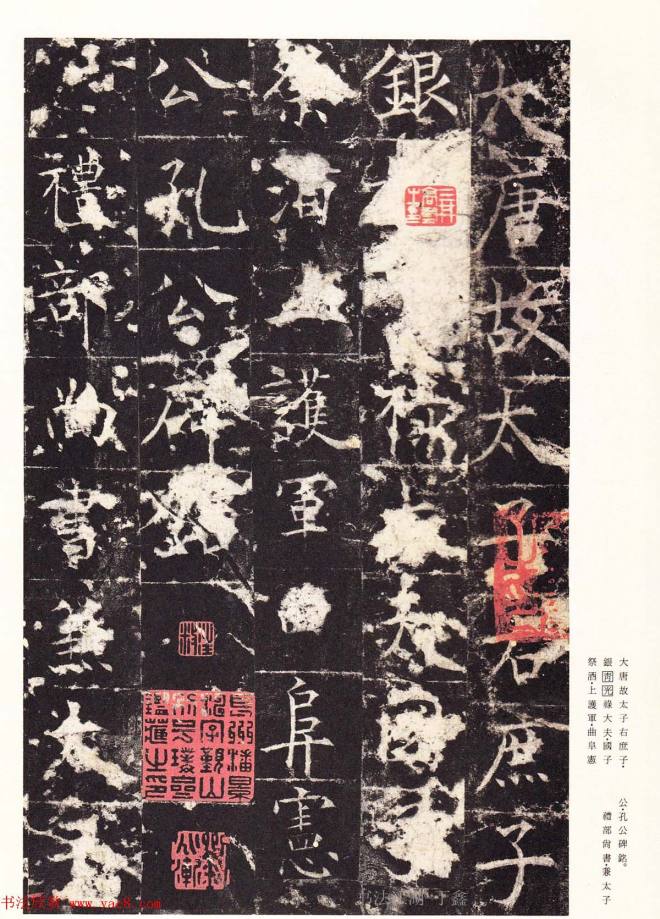 大唐故太子右庶子
銀祿大夫國子
祭酒上護軍曲阜憲
公孔公碑銘
禮部尚書兼太子
大唐故太子右庶子・
銀靑光祿大夫・國子
祭酒・上護軍・曲阜憲
公・孔公碑銘。
禮部尙書・兼太子
书法欣赏 www.yac8.com